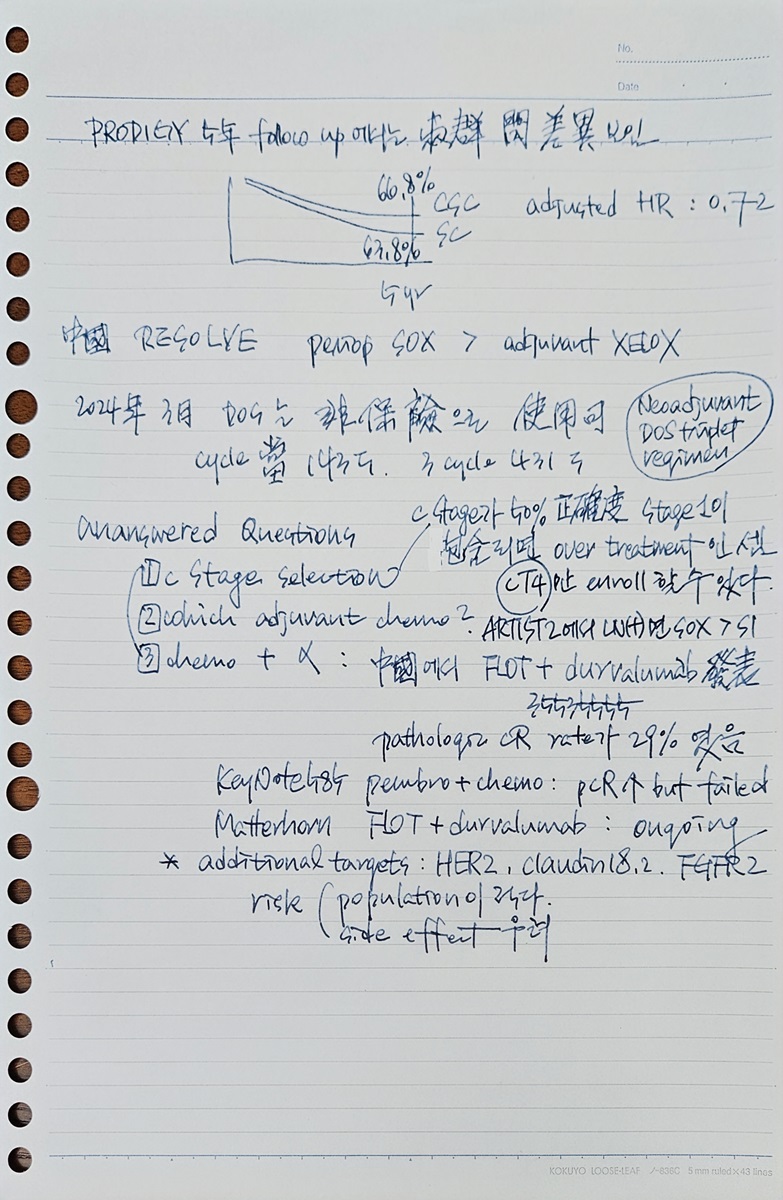 No.
Date
PRODIGY 5年 follow up에서는 両群 間 差異 보임
66.8%
CSC
adjusted HR : 0.72
SC
63.8%
5yr
中國 RESOLVE periop SOX > adjuvant XELOX
2024年 3月 DOS는 非保險으로 使用可
Neoadjuvant
DOS triplet
regimen
cycle 當 143만. 3 cycle 431만
Unanswered Questions
c stage가 50% 正確度 stage 1이
포함되면 over treatment 인 셈
① c stage selection
cT4만 enroll 할 수 있다.
② which adjuvant chemo? ARTIST2에서 LN(+)면 SOX > S1
③ chemo + α : 中國에서 FLOT + durvalumab 發表
pathologic CR rate가 29% 였음
KeyNote585 pembro + chemo : pCR↑ but failed
Matterhorn FLOT + durvalumab : ongoing
* additional targets : HER2, claudin18.2. FGFR2
risk ( population이 적다.
side effect 우려
KOKUYO LOOSE-LEAF ノ-836C 5 mm ruled × 43 lines